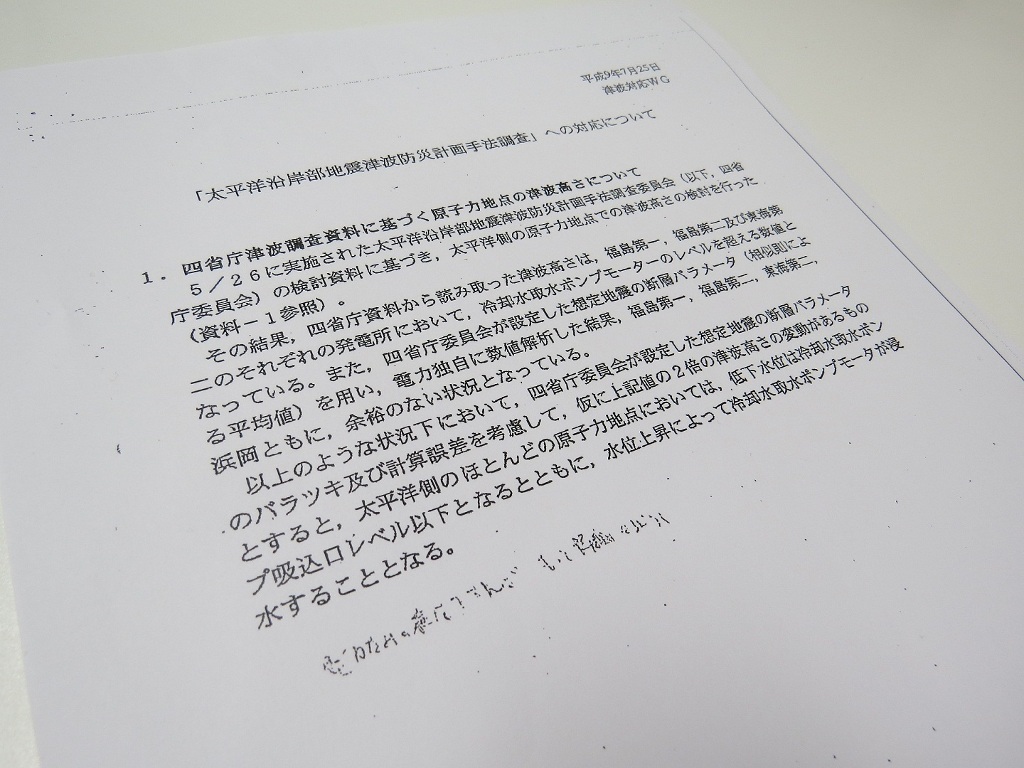 平成9年7月25日
津波対応WG
「太平洋沿岸部地震津波防災計画手法調査」への対応について
1．四省庁津波調査資料に基づく原子力地点の津波高さについて
5／26に実施された太平洋沿岸部地震津波防災計画手法調査委員会（以下，四省
庁委員会）の検討資料に基づき，太平洋側の原子力地点での津波高さの検討を行った
（資料－1参照）．
その結果，四省庁資料から読み取った津波高さは，福島第一，福島第二及び東海第
二のそれぞれの発電所において，冷却水取水ポンプモーターのレベルを超える数値と
なっている．また，四省庁委員会が設定した想定地震の断層パラメータ（相似則によ
る平均値）を用い，電力独自に数値解析した結果，福島第一，福島第二，東海第二，
浜岡ともに，余裕のない状況となっている．
以上のような状況下において，四省庁委員会が設定した想定地震の断層パラメータ
のバラツキ及び計算誤差を考慮して，仮に上記値の2倍の津波高さの変動があるもの
とすると，太平洋側のほとんどの原子力地点においては，低下水位は冷却水取水ポン
プ吸込口レベル以下となるとともに，水位上昇によって冷却水取水ポンプモータが浸
水することとなる。